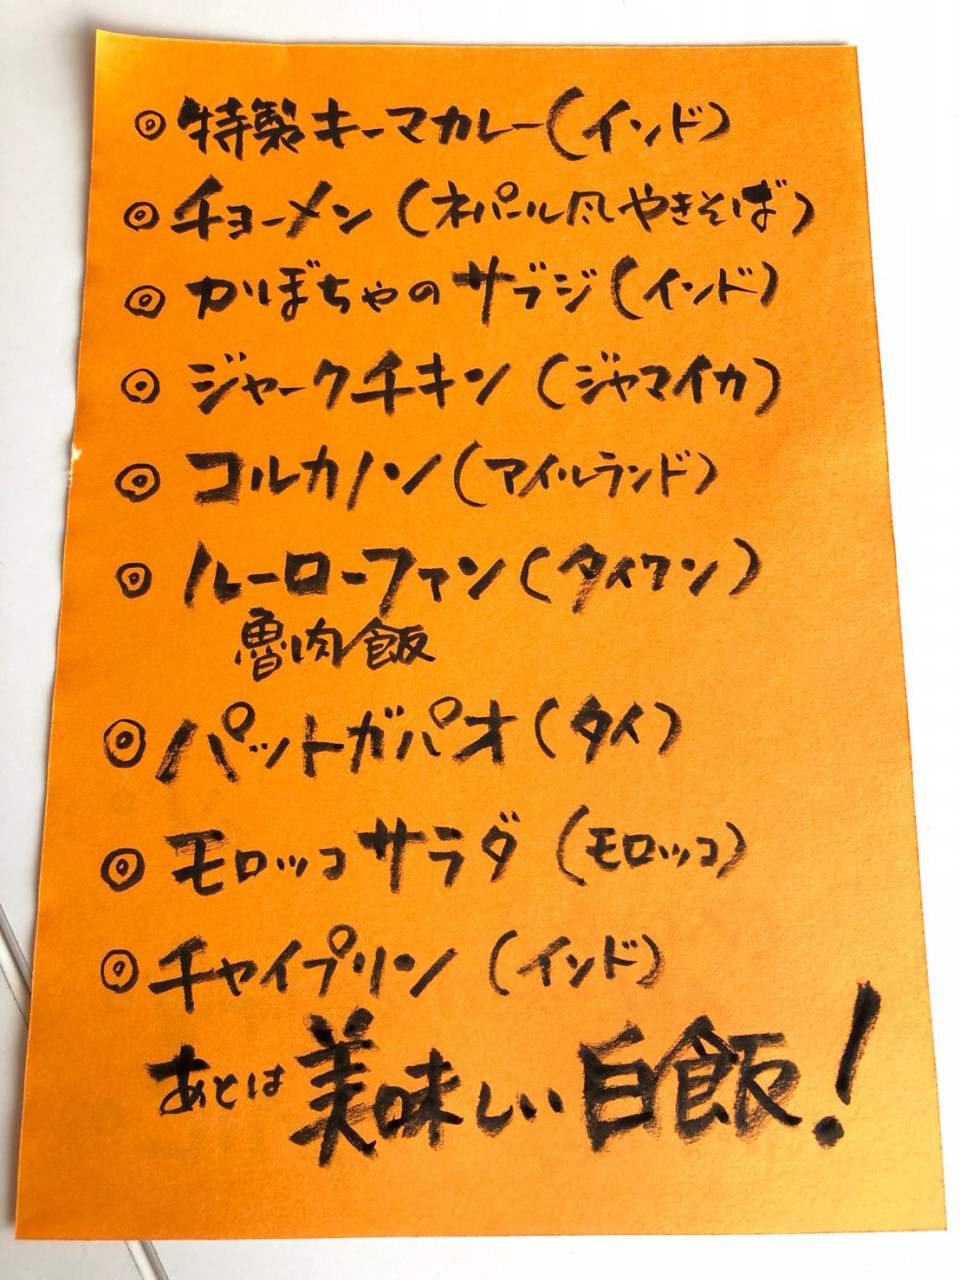 ◎特製キーマカレー(インド)
◎チョーメン(ネパール風やきそば)
◎かぼちゃのサブジ(インド)
◎ジャークチキン(ジャマイカ)
◎コルカノン(アイルランド)
◎ルーローファン(タイワン)
魯肉飯
◎パットガパオ(タイ)
◎モロッコサラダ(モロッコ)
◎チャイプリン(インド)
あとは美味しい白飯!